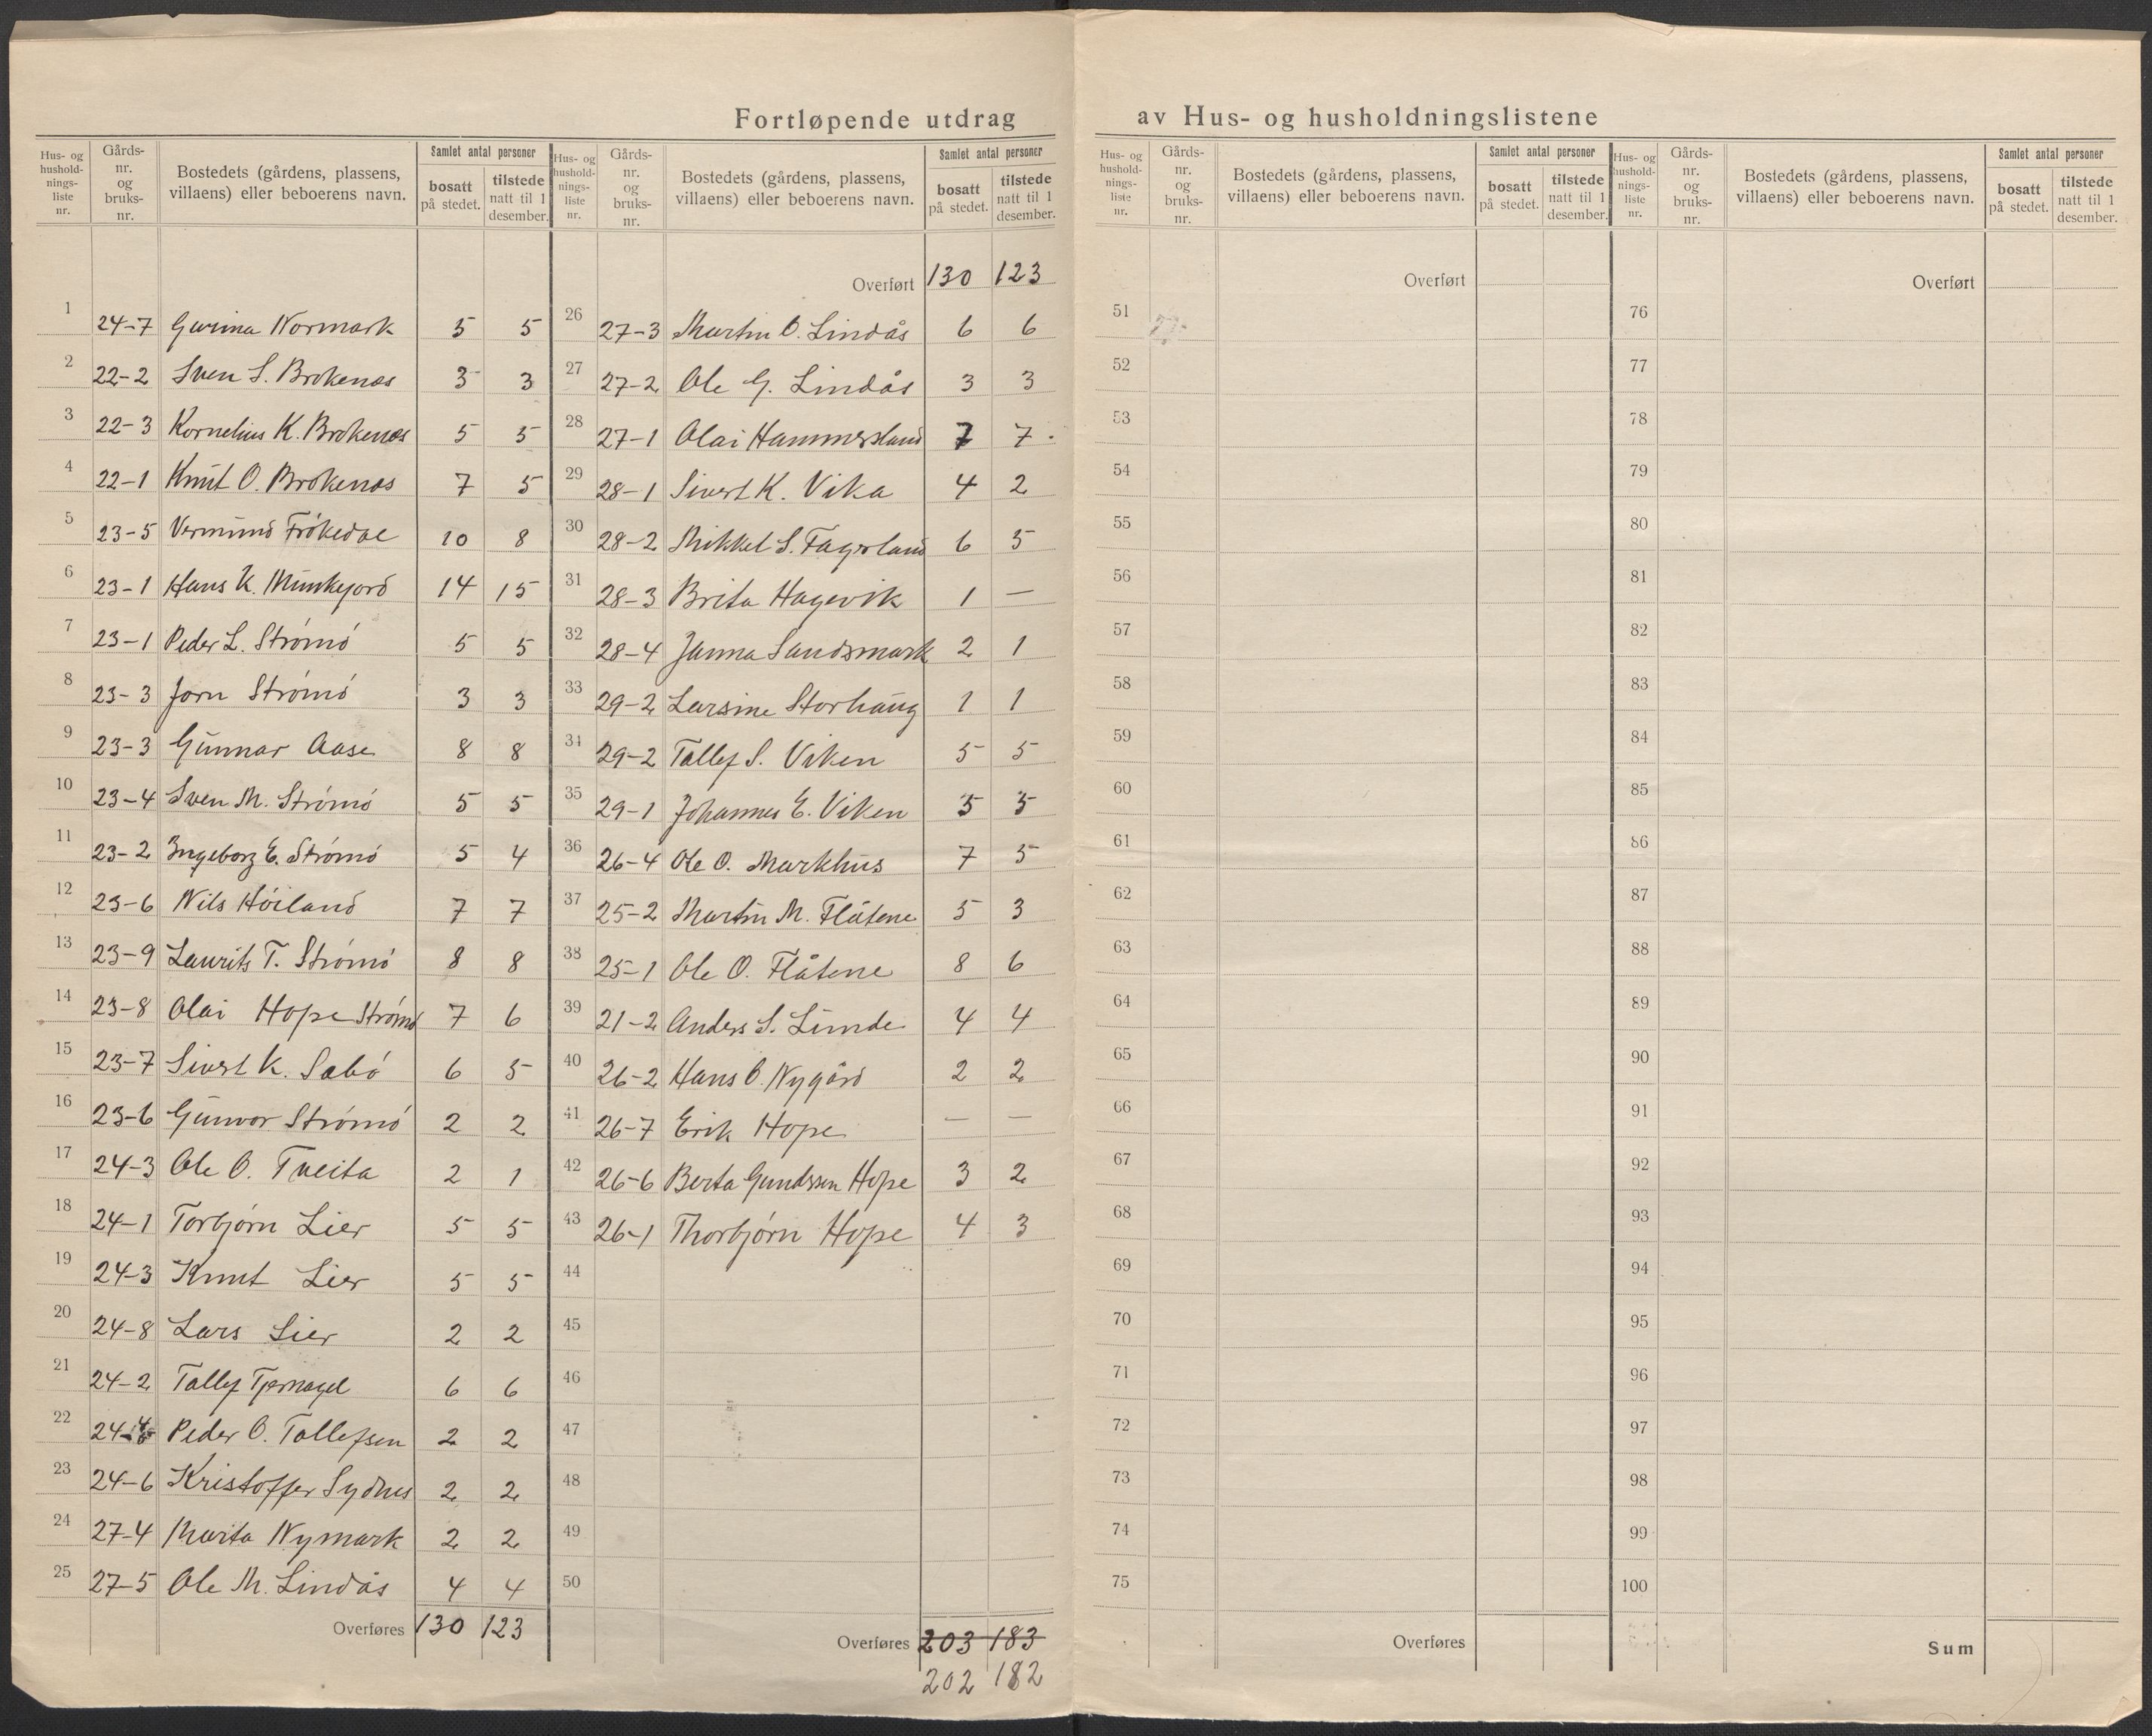 Fortløpende utdrag av Hus- og husholdningslistene
Hus- og hushold-nings-liste nr. Gårds-nr. og bruks-nr. Bostedets (gårdens, plassens, villaens) eller beboerens navn. Samlet antal personer bosatt på stedet. tilstede natt til 1 desember.
1 24-7 Gurina Normark 5 5
2 22-2 Sven S. Brokenes 3 3
3 22-3 Kornelius K. Brokenes 5 5
4 22-1 Knut O. Brokenes 7 5
5 23-5 Vermund Frøkedal 10 8
6 23-1 Hans K. Munkejord 14 15
7 23-1 Peder L. Strömö 5 5
8 23-3 Jorn Strömö 3 3
9 23-3 Gunnar Aase 8 8
10 23-4 Sven M. Strömö 5 5
11 23-2 Ingeborg E. Strömö 5 4
12 23-6 Nils Höiland 7 7
13 23-9 Laurits T. Strömö 8 8
14 23-8 Olai Hope Strömö 7 6
15 23-7 Sivert K. Sæbö 6 5
16 23-6 Gunvor Strömö 2 2
17 24-3 Ole O. Tveita 2 1
18 24-1 Torbjörn Lier 5 5
19 24-3 Knut Lier 5 5
20 24-8 Lars Lier 2 2
21 24-2 Tollef Tjernagel 6 6
22 24- Peder O. Tollefsen 2 2
23 24-6 Kristoffer Sydnes 2 2
24 27-4 Marta Nymark 2 2
25 27-5 Ole M. Lindås 4 4
Overføres 130 123
Hus- og hushold-nings-liste nr. Gårds-nr. og bruks-nr. Bostedets (gårdens, plassens, villaens) eller beboerens navn. Samlet antal personer bosatt på stedet. tilstede natt til 1 desember.
Overført 130 123
26 27-3 Martin O. Lindås 6 6
27 27-2 Ole G. Lindås 3 3
28 27-1 Olai Hammersland 7 7
29 28-1 Sivert K. Vika 4 2
30 28-2 Mikkel S. Fagerland 6 5
31 28-3 Brita Hagevik 1 —
32 28-4 Janna Sandsmark 2 1
33 29-2 Larsine Storhaug 1 1
34 29-2 Tollef S. Viken 5 5
35 29-1 Johannes E. Viken 5 5
36 26-4 Ole O. Markhus 7 5
37 25-2 Martin M. Flåtene 5 3
38 25-1 Ole O. Flåtene 8 6
39 21-2 Anders S. Lunde 4 4
40 26-2 Hans O. Nygård 2 2
41 26-7 Erik Hope — —
42 26-6 Berta Gundersen Hope 3 2
43 26-1 Thorbjörn Hope 4 3
44
45
46
47
48
49
50
Overføres 203 183
202 182
Hus- og hushold-nings-liste nr. Gårds-nr. og bruks-nr. Bostedets (gårdens, plassens, villaens) eller beboerens navn. Samlet antal personer bosatt på stedet. tilstede natt til 1 desember.
Overført
51
52
53
54
55
56
57
58
59
60
61
62
63
64
65
66
67
68
69
70
71
72
73
74
75
Overføres
Hus- og hushold-nings-liste nr. Gårds-nr. og bruks-nr. Bostedets (gårdens, plassens, villaens) eller beboerens navn. Samlet antal personer bosatt på stedet. tilstede natt til 1 desember.
Overført
76
77
78
79
80
81
82
83
84
85
86
87
88
89
90
91
92
93
94
95
96
97
98
99
100
Sum